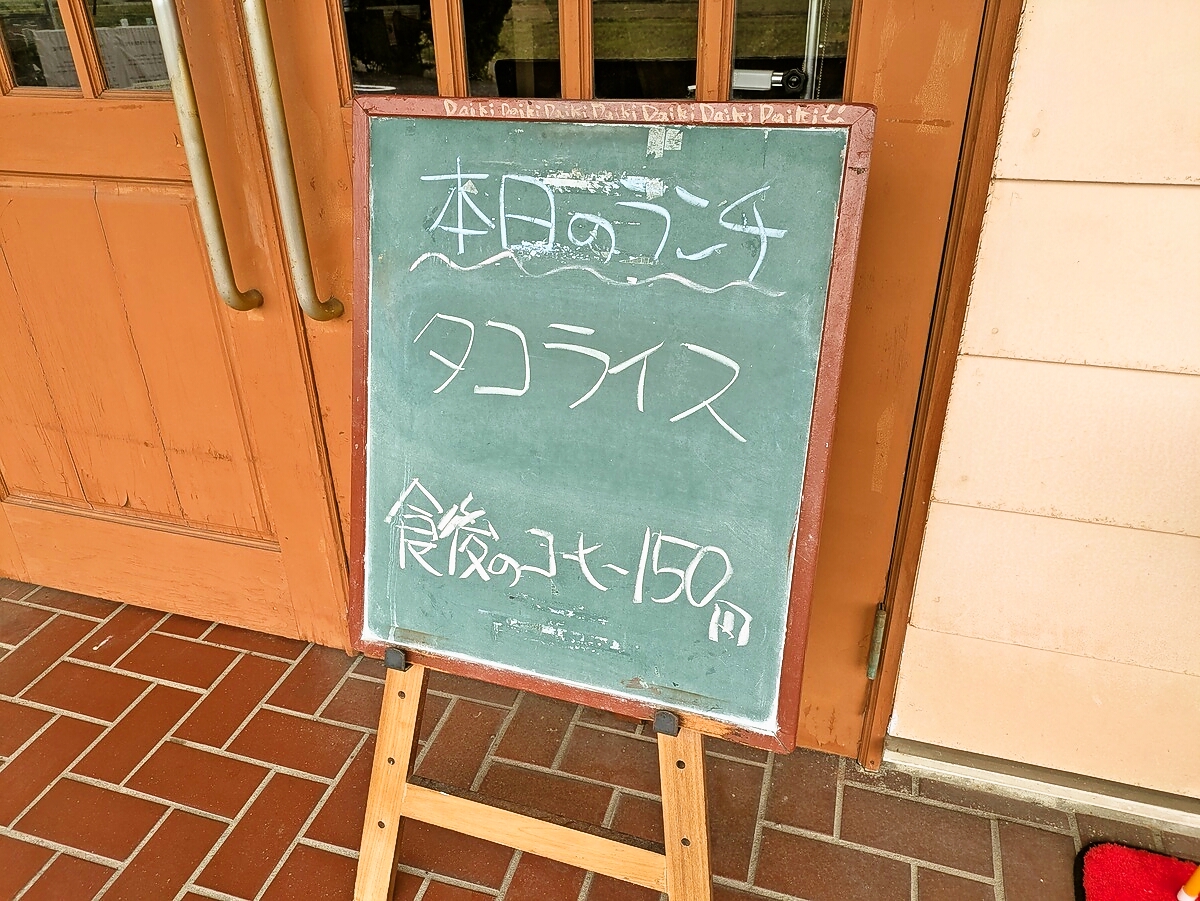 Daiki Daiki Daiki Daiki Daiki Daiki Daiki!!
本日のランチ
タコライス
食後のコーヒー150円